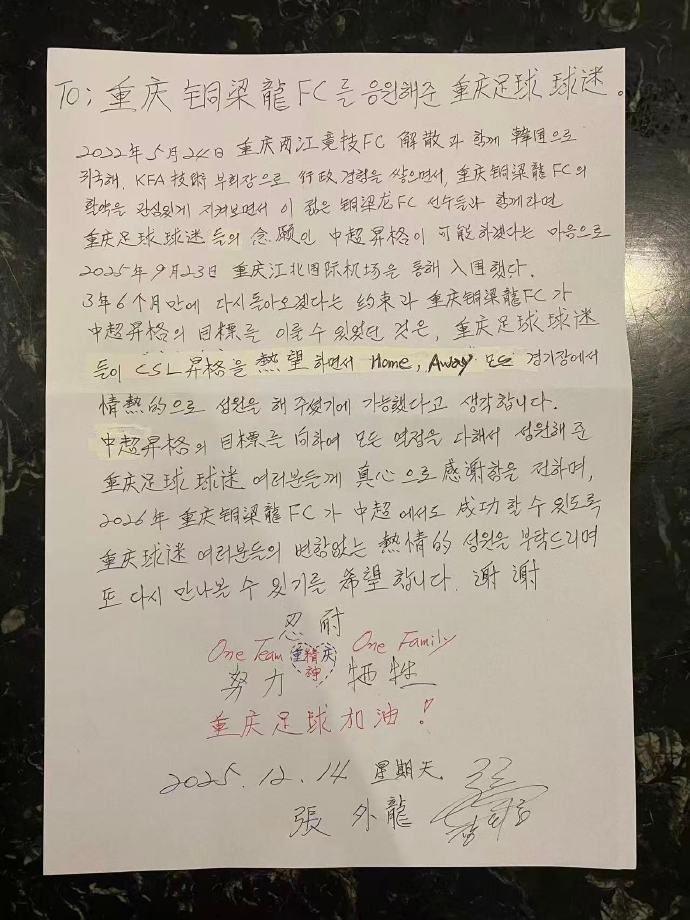 To; 重庆 铜梁龍FC를 응원해준 重庆足球 球迷。
2022年 5月24日 重庆两江竞技FC 解散과 함께 韓国으로
귀국해, KFA 技術 부회장으로 行政 경험을 쌓으면서, 重庆铜梁龍FC의
활약을 관심있게 지켜보면서 이 젊은 铜梁龙FC 선수들과 함께라면
重庆足球 球迷들의 念願인 中超昇格이 可能하겠다는 마음으로
2025年 9月23日 重庆江北国际机场을 통해 入国했다.
3年6个月만에 다시돌아오겠다는 约束과 重庆铜梁龍FC가
中超昇格의 目標를 이룰 수 있었던 것은, 重庆足球 球迷
들이 CSL昇格을 熱望하면서 Home, Away 모든 경기장에서
情熱的으로 성원을 해 주셨기에 가능했다고 생각합니다.
中超昇格의 目標를 向하여 모든 역정을 다해서 성원해 준
重庆足球 球迷 여러분들게 真心으로 感谢함을 전하며,
2026年 重庆铜梁龍FC가 中超에서도 成功할 수 있도록
重庆球迷 여러분들의 변함없는 熱情的 성원을 부탁드리며
또 다시 만나볼 수 있기를 希望합니다. 谢谢
忍耐
One Team 重精庆神 One Family
努力 牺牲
重庆足球加油!
2025.12.14 星期天.
張 外龍